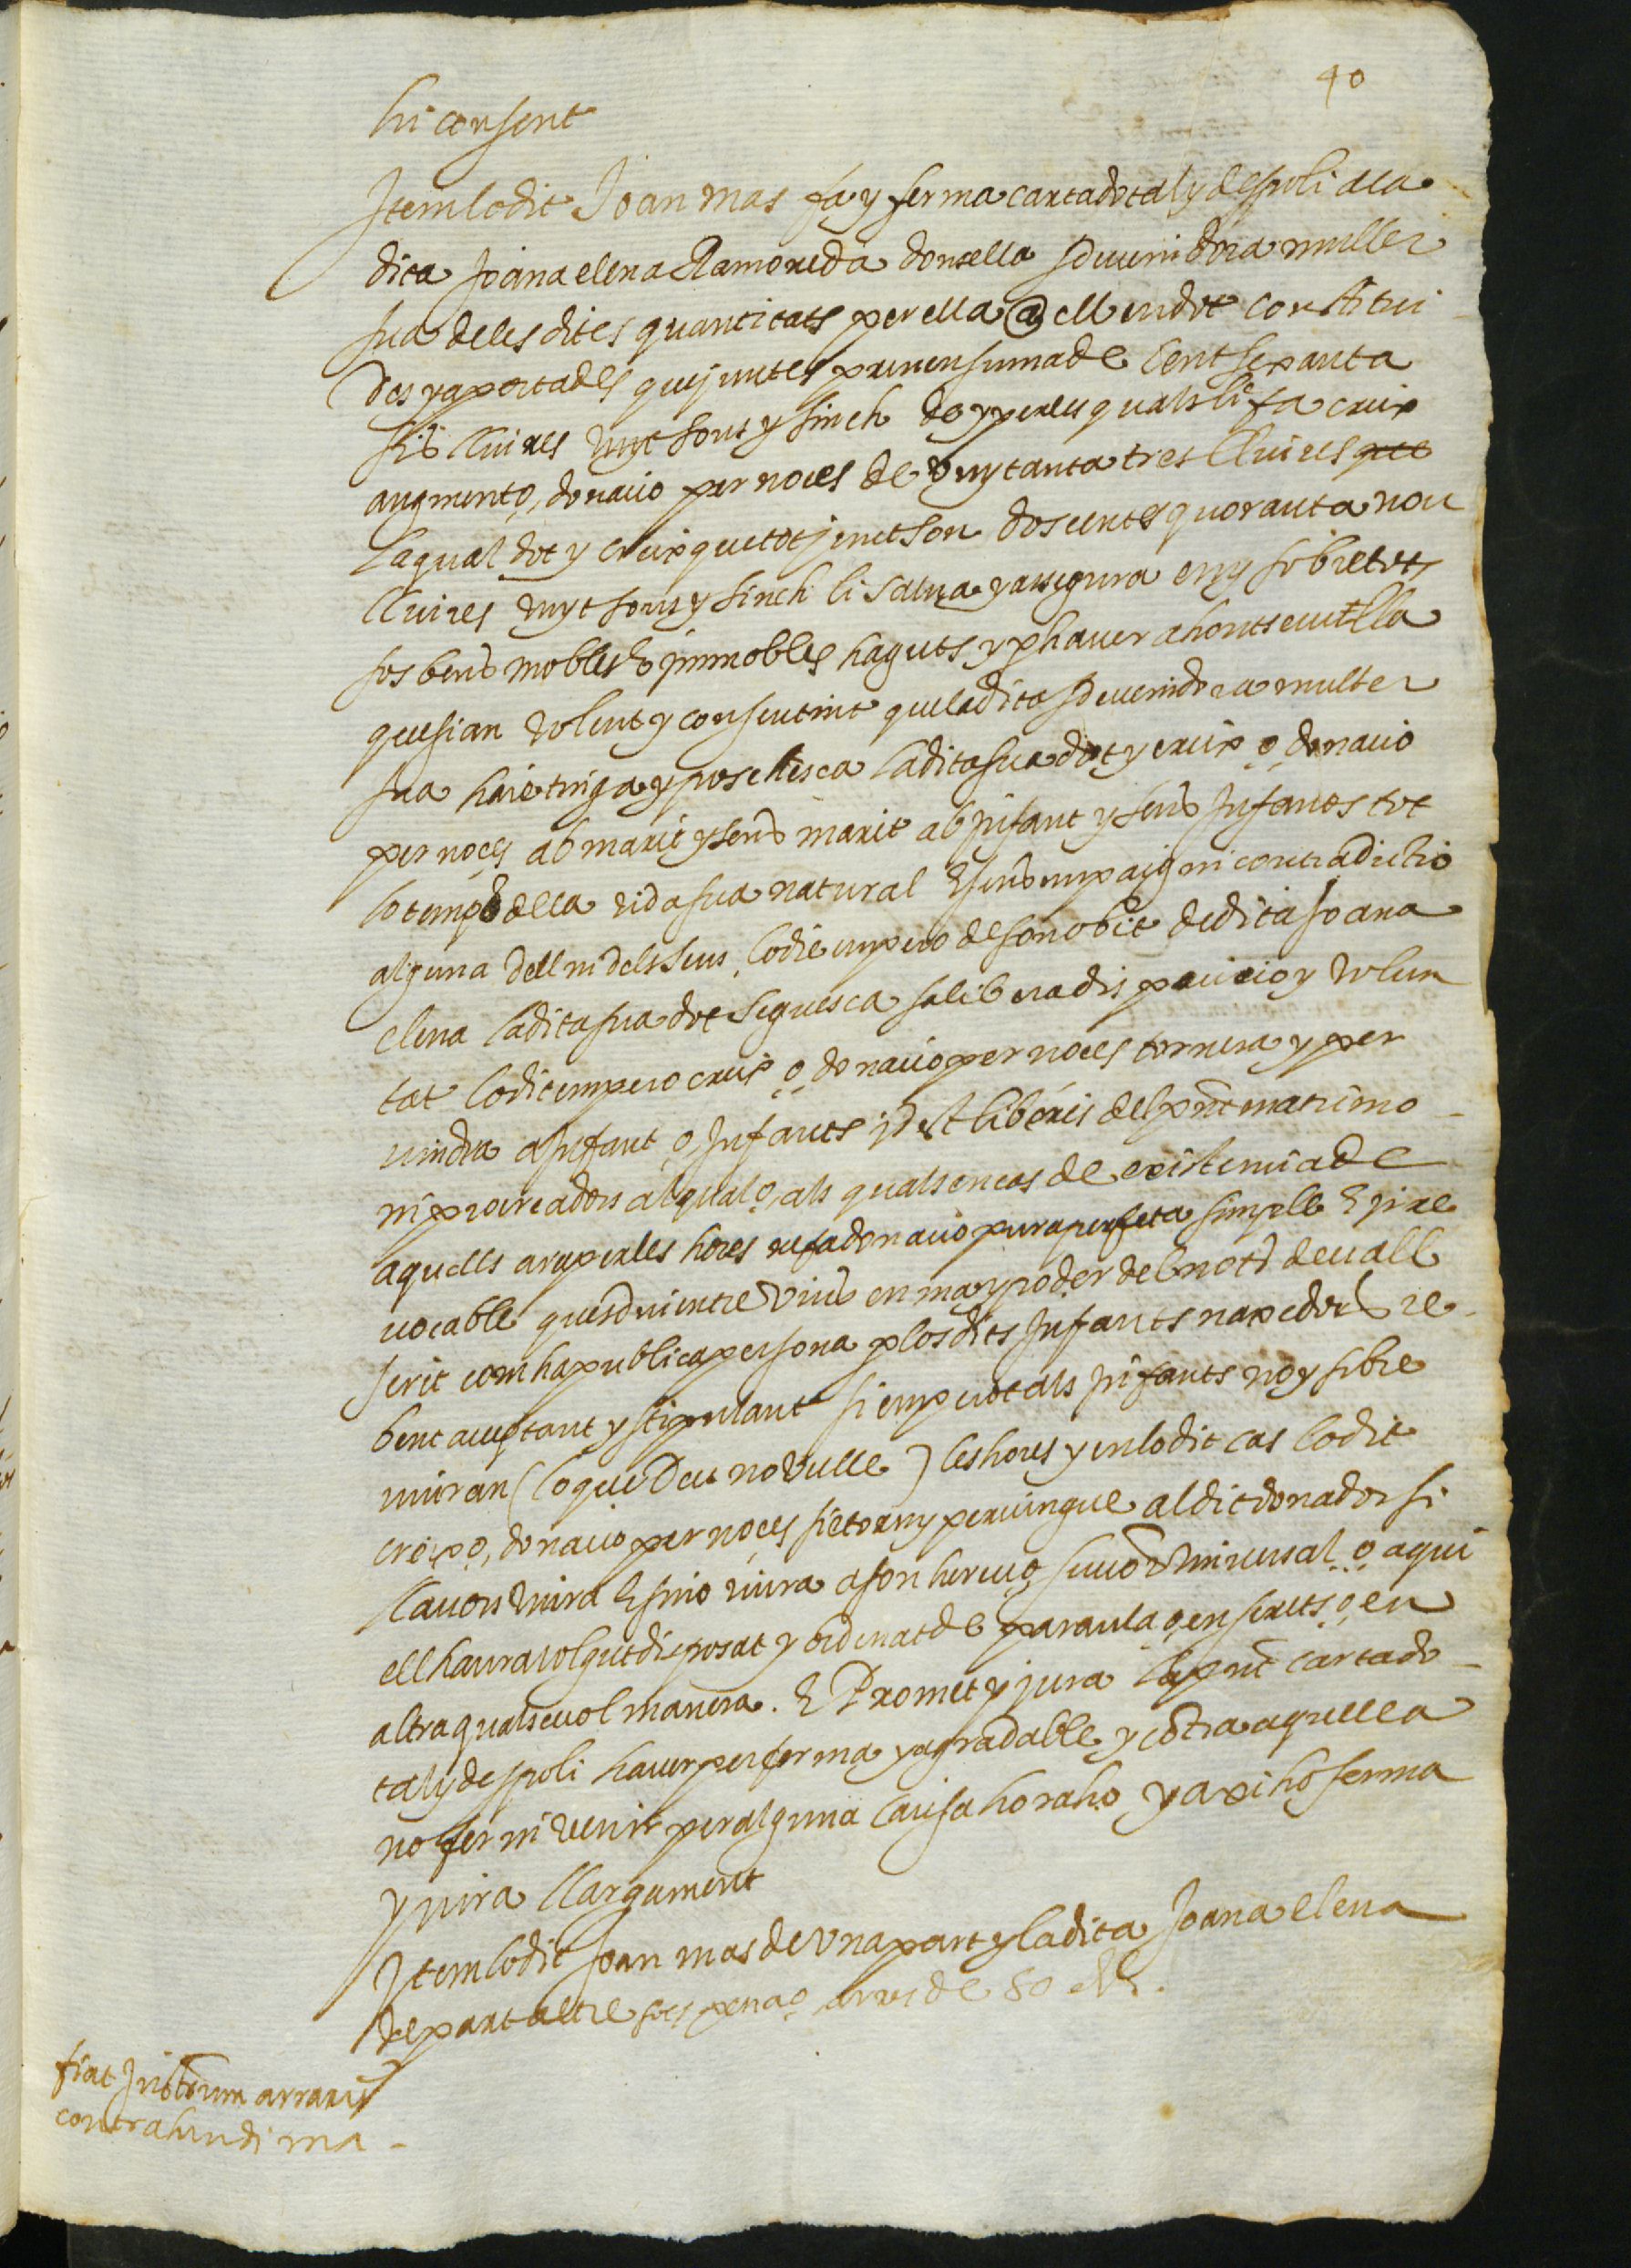 40
hi consent
Item lo dit Joan mas fa y ferma carta dotal y de spoli a la
dita Joana elena Ramoneda donsella sdevenidora muller
sua de les dites quantitats per ella a ell en dot constitui
des y aportades que juntes prenen suma de Cent sexanta
sis lliures vuyt sous y sinch de y per les quals li fa creix
augment o, donatio per noces de vuytanta tres lliures
la qual dot y creix que tot junt son doscentes quoranta nou
lliures vuyt sous y sinch li salva y assegura en y sobre tots
sos bens mobles e immobles haguts y p haver ahont se vulla
que sian volent y consentint que la dita sdevenidora muller
sua haie tinga y possehesca la dita sua dot y creix o, donatio
per noces ab marit y sens marit ab infant y sens Infants tot
lo temps de la vida sua natural E sens empaig ni contradictio
alguna dell ni dels seus, lo die empero de son obit de dita Joana
elena la dita sua dot seguesca sa libera dispositio y volun
tat lo dit empero creix o, donatio per noces tornara y per
vindra a Infant o, Infants id est liberis del pnt matrimo
ni procreadors al qual o, als quals en cas de existentia de
aquells ara per les hores ne fa donatio pura perfeta simple E irre
vocable ques diu entre vius en ma y poder del not devall
scrit com ha publica persona p los dits Infants naxedors re
bent acceptant y stipulant si empero tals infants noy sobre
viuran (lo que Deu no vulle) les hores y en lo dit cas lo dit
creix o, donatio per noces sie torn y pervingue al dit donador si
llavors viura E sino viura a son hereu o, successor universal o, a qui
ell haura volgut disposat y ordenat de paraula o, en scrits o, en
altra qualsevol manera. E Promet y jura la pnt carta do
tal y de spoli haver per ferma y agradable y contra aquella
no fer ni venir per alguna causa ho raho y axi ho ferma
y jura llargament
Item lo dit Joan mas de una part y la dita Joana elena
de part altre pena o, arres de 50 ll.
fiat Instrum arrarum
contrahendi ma